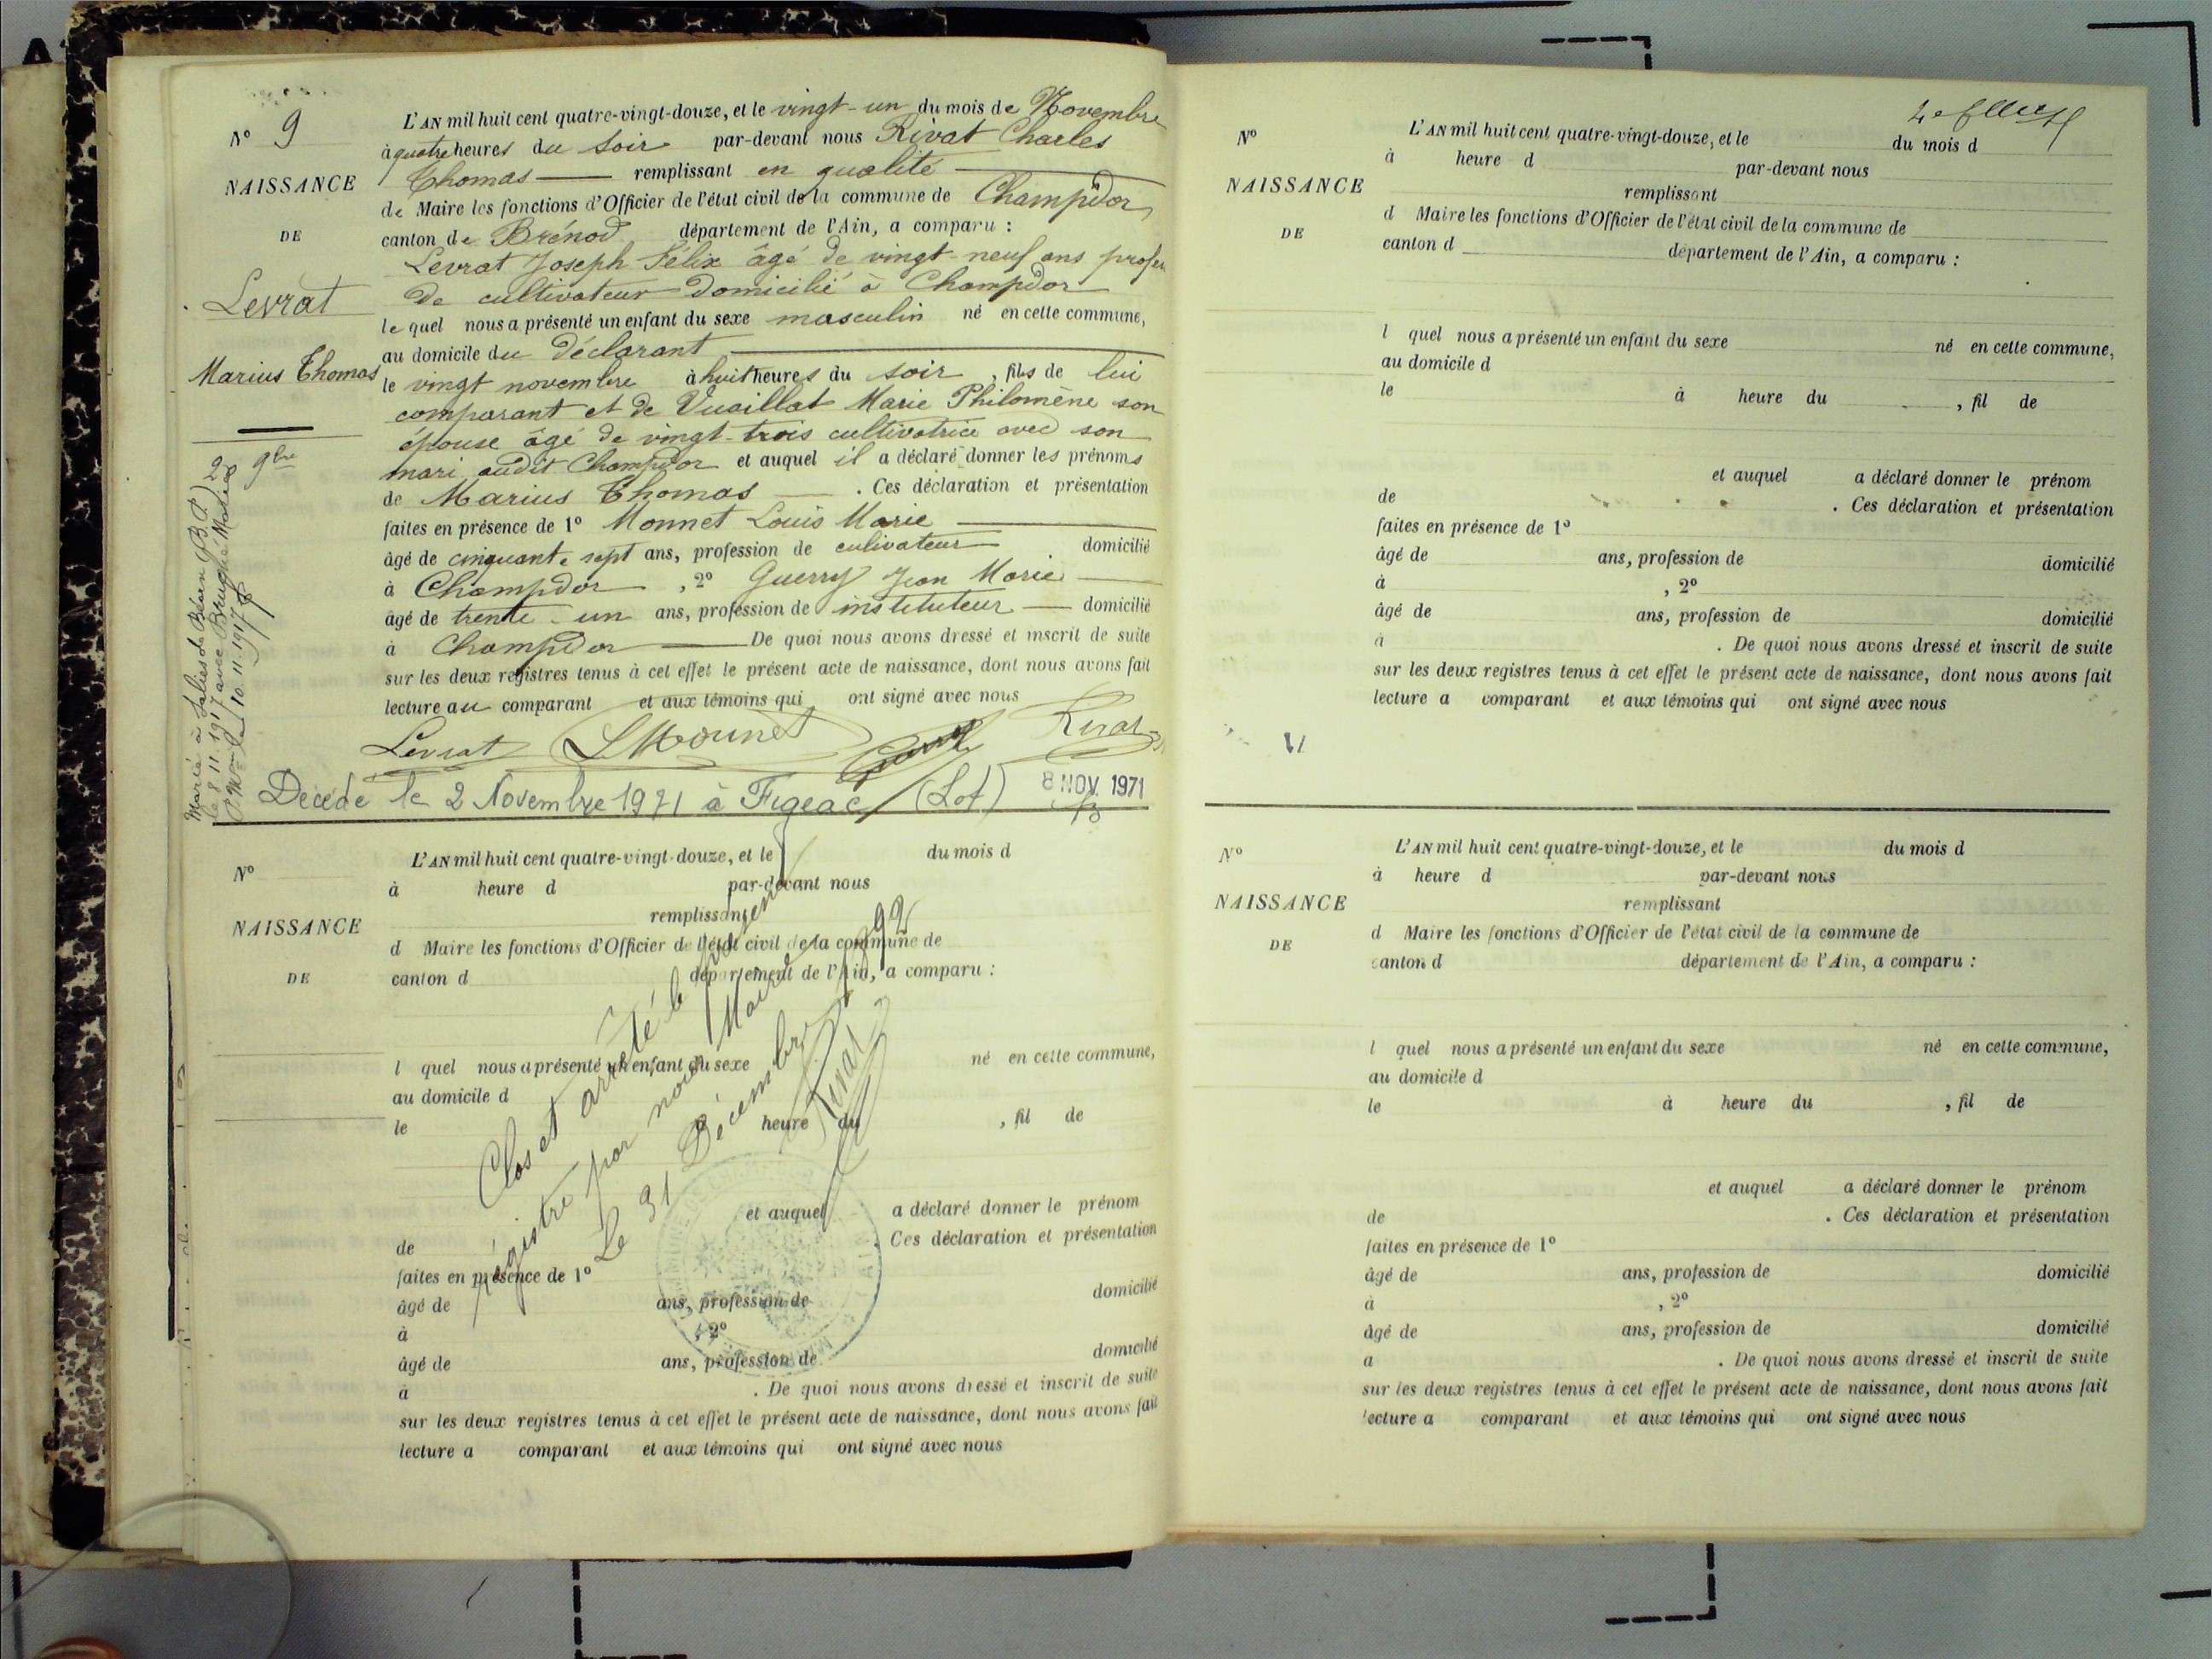 N° 9
NAISSANCE
DE
Levrat
Marius Thomas
20 9bre
Marié à Salies de Béarn (B.P.)
le 8 11 1917 avec
10.11.1917
L'AN mil huit cent quatre-vingt-douze, et le vingt-un du mois de Novembre
à quatre heures du soir par-devant nous Rivat Charles
Thomas remplissant en qualité
de Maire les fonctions d'Officier de l'état civil de la commune de Champdor
canton de Brénod département de l'Ain, a comparu :
Levrat Joseph Félix âgé de vingt-neuf ans profes
de cultivateur domicilié à Champdor
lequel nous a présenté un enfant du sexe masculin né en cette commune,
au domicile du déclarant
le vingt novembre à huit heures du soir, fils de lui
comparant et de Vuaillat Marie Philomène son
épouse âgé de vingt-trois cultivatrice avec son
mari audit Champdor et auquel il a déclaré donner les prénoms
de Marius Thomas . Ces déclaration et présentation
faites en présence de 1° Monnet Louis Marie
âgé de cinquante sept ans, profession de cultivateur domicilié
à Champdor , 2° Guerry Jean Marie
âgé de trente-un ans, profession de instituteur domicilié
à Champdor De quoi nous avons dressé et inscrit de suite
sur les deux registres tenus à cet effet le présent acte de naissance, dont nous avons fait
lecture au comparant et aux témoins qui ont signé avec nous
Levrat LMonnet Rivat
Décédé le 2 Novembre 1971 à Figeac (Lot) 8 NOV. 1971
N°
NAISSANCE
DE
L'AN mil huit cent quatre-vingt-douze, et le du mois d
à heure d par-devant nous
remplissant
d Maire les fonctions d'Officier de l'état civil de la commune de
canton d département de l'Ain, a comparu :
l quel nous a présenté un enfant du sexe né en cette commune,
au domicile d
le à heure du , fil de
et auquel a déclaré donner le prénom
de . Ces déclaration et présentation
faites en présence de 1°
âgé de ans, profession de domicilié
à , 2°
âgé de ans, profession de domicilié
à . De quoi nous avons dressé et inscrit de suite
sur les deux registres tenus à cet effet le présent acte de naissance, dont nous avons fait
lecture a comparant et aux témoins qui ont signé avec nous
Clos et arrêté le présent
registre par nous Maire
Le 31 Décembre 1892
Rivat
N°
NAISSANCE
DE
L'AN mil huit cent quatre-vingt-douze, et le du mois d
à heure d par-devant nous
remplissant
d Maire les fonctions d'Officier de l'état civil de la commune de
canton d département de l'Ain, a comparu :
l quel nous a présenté un enfant du sexe né en cette commune,
au domicile d
le à heure du , fil de
et auquel a déclaré donner le prénom
de . Ces déclaration et présentation
faites en présence de 1°
âgé de ans, profession de domicilié
à , 2°
âgé de ans, profession de domicilié
à . De quoi nous avons dressé et inscrit de suite
sur les deux registres tenus à cet effet le présent acte de naissance, dont nous avons fait
lecture a comparant et aux témoins qui ont signé avec nous
N°
NAISSANCE
DE
L'AN mil huit cent quatre-vingt-douze, et le du mois d
à heure d par-devant nous
remplissant
d Maire les fonctions d'Officier de l'état civil de la commune de
canton d département de l'Ain, a comparu :
l quel nous a présenté un enfant du sexe né en cette commune,
au domicile d
le à heure du , fil de
et auquel a déclaré donner le prénom
de . Ces déclaration et présentation
faites en présence de 1°
âgé de ans, profession de domicilié
à , 2°
âgé de ans, profession de domicilié
a . De quoi nous avons dressé et inscrit de suite
sur les deux registres tenus à cet effet le présent acte de naissance, dont nous avons fait
lecture a comparant et aux témoins qui ont signé avec nous